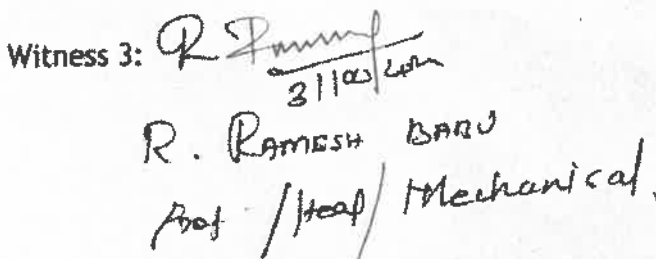 Witness 3:
R. RAMESH BABU
Prof /Head/ Mechanical.